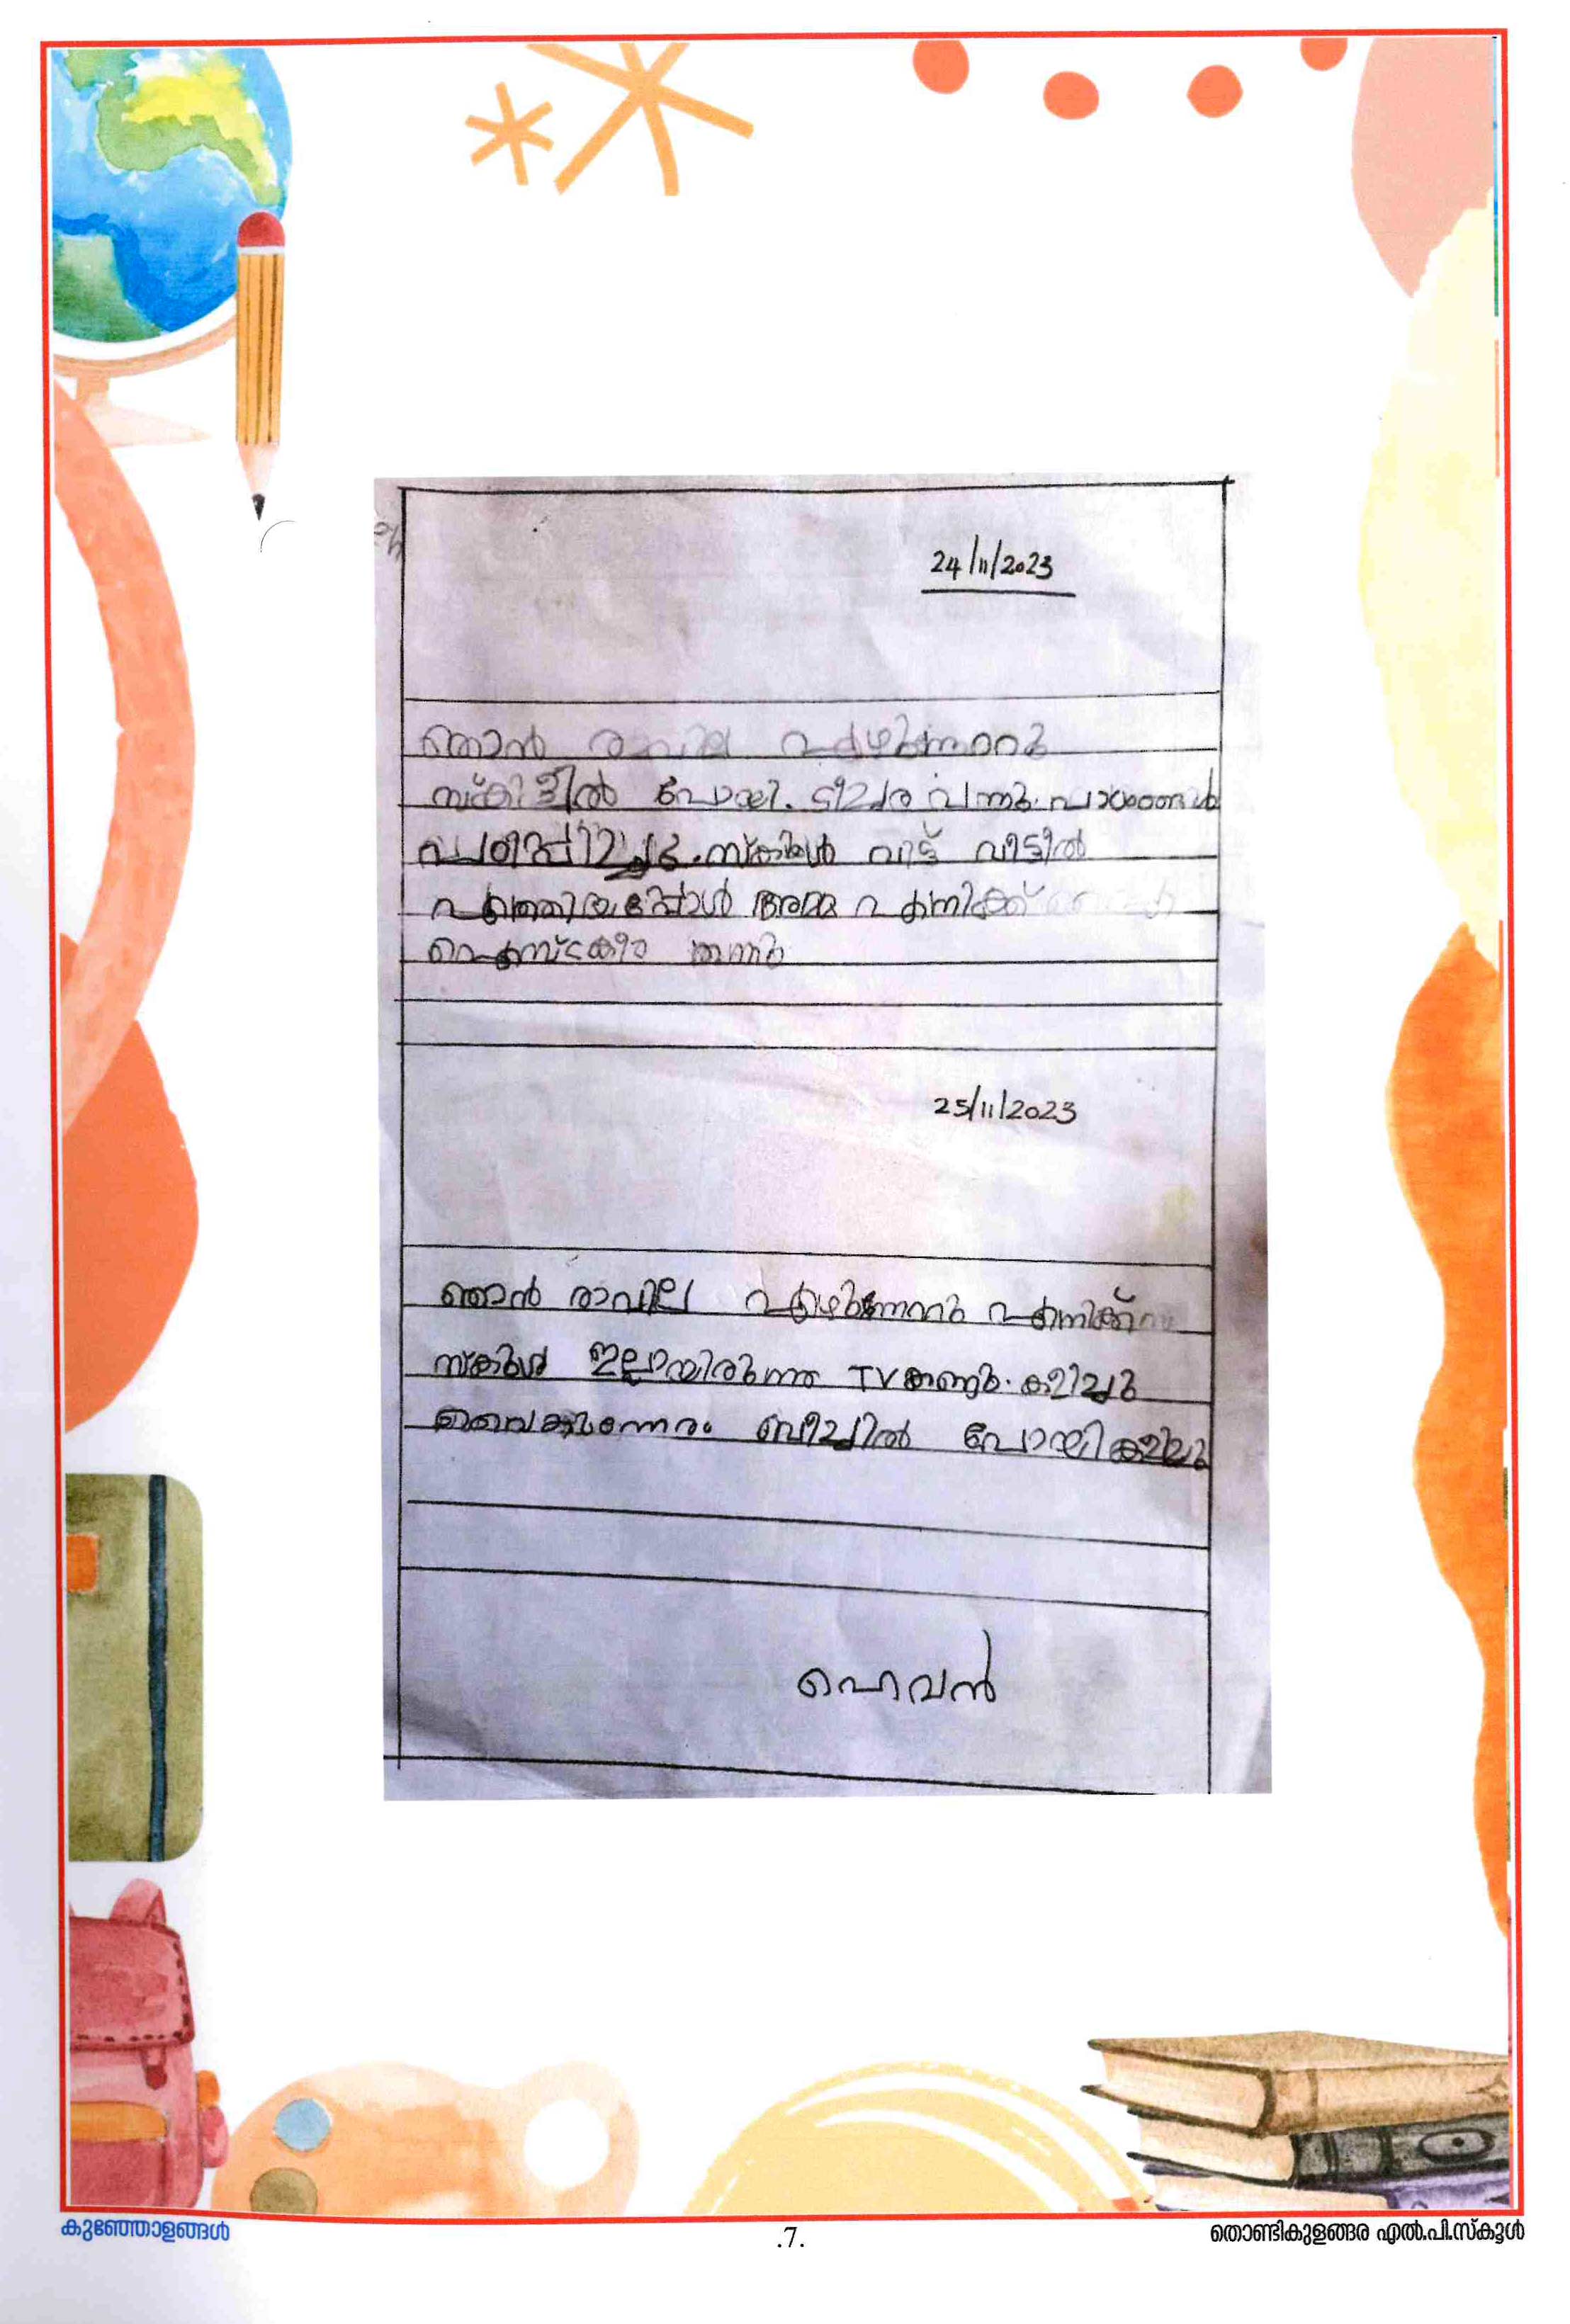 24/11/2023
ഞാൻ രാവിലെ എഴുന്നേറ്റു
സ്കൂളിൽ പോയി. ടീച്ചർ വന്നു. പാഠങ്ങൾ
പഠിപ്പിച്ചു. സ്കൂൾ വിട്ട് വീട്ടിൽ
എത്തിയപ്പോൾ അമ്മ എനിക്ക്
ഐസ്ക്രീം തന്നു
25/11/2023
ഞാൻ രാവിലെ എഴുന്നേറ്റു എനിക്ക്
സ്കൂൾ ഇല്ലായിരുന്നു TV കണ്ടു. കളിച്ചു
വൈകുന്നേരം ബീച്ചിൽ പോയി കളിച്ചു
ഹെവൻ
കുഞ്ഞോളങ്ങൾ
.7.
തൊണ്ടികുളങ്ങര എൽ.പി.സ്കൂൾ